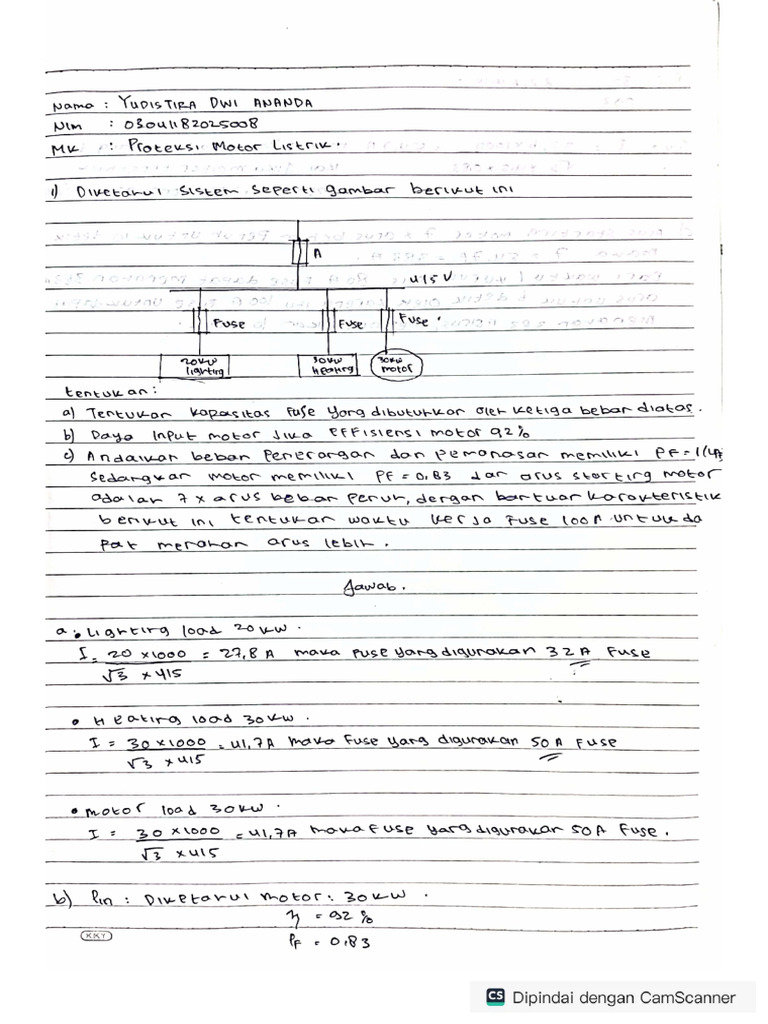 Nama : YUDISTIRA DWI ANANDA
Nim : 03041182025008
MK : Proteksi Motor Listrik.
1) Diketahui sistem seperti gambar berikut ini
A
415 V
Fuse
Fuse
Fuse
20kW lighting
30kW Heating
30kW motor
tentukan :
a) Tentukan kapasitas fuse yang dibutuhkan oleh ketiga beban diatas.
b) Daya input motor jika effisiensi motor 92%
c) Andaikan beban penerangan dan pemanasan memiliki PF = 1
sedangkan motor memiliki PF = 0,83 dan arus starting motor
adalah 7 x arus beban penuh, dengan bantuan karakteristik
berikut ini tentukan waktu kerja fuse 100A untuk da
pat menahan arus lebih.
Jawab.
a. • Lighting load 20 kW.
I = 20 x 1000 = 27,8 A maka fuse yang digunakan 32 A Fuse
√3 x 415
• Heating load 30 kW.
I = 30 x 1000 = 41,7A maka fuse yang digunakan 50 A Fuse
√3 x 415
• Motor load 30 kW.
I = 30 x 1000 = 41,7A maka fuse yang digunakan 50A Fuse.
√3 x 415
b) Pin : Diketahui motor : 30 kW.
η = 92 %
PF = 0,83
KKY
CS Dipindai dengan CamScanner